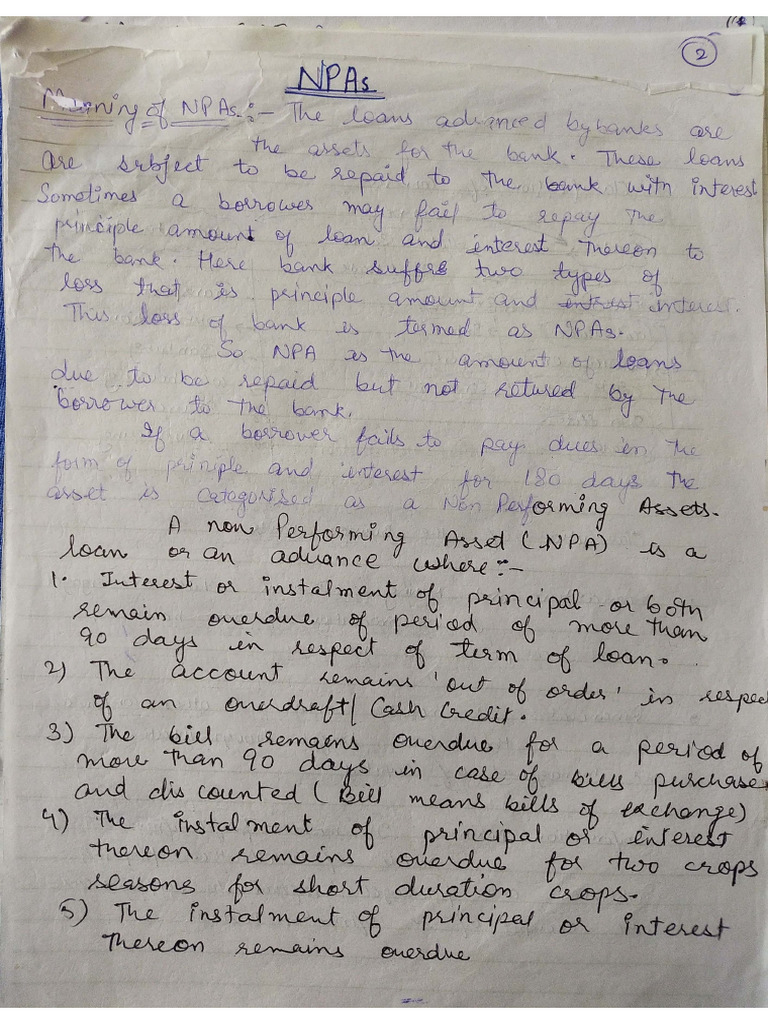 2
NPAs
Meaning of NPAs :- The loans advanced by banks are
the assets for the bank. These loans
are srbject to be repaid to the bank with interest
Sometimes a borrower may fail to repay the
principle amount of loan and interest thereon to
the bank. Here bank suffrs two types of
loss that is principle amount and intrest interest.
This loss of bank is termed as NPAs.
So NPA is the amount of loans
due to be repaid but not retured by the
borrower to the bank.
If a borrower fails to pay dues in the
form of priniple and interest for 180 days the
asset is catagorised as a Non Performing Assets.
A non Performing Asset (NPA) is a
loan or an advance where :-
1. Interest or instalment of principal or both
remain overdue of period of more than
90 days in respect of term of loan.
2) The account remains 'out of order' in respec
of an overdraft/ Cash Credit.
3) The bill remains overdue for a period of
more than 90 days in case of bills purchase
and discounted (Bill means bills of exchange)
4) The instalment of principal or interest
thereon remains overdue for two crops
seasons for short duration crops.
5) The instalment of principal or interest
thereon remains overdue